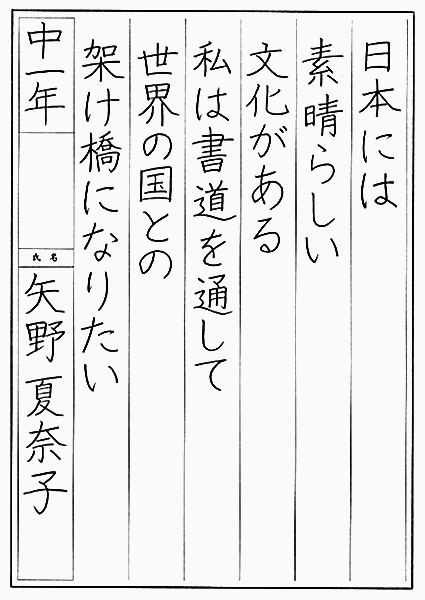 日本には
素晴らしい
文化がある
私は書道を通して
世界の国との
架け橋になりたい
中一年
氏名
矢野夏奈子